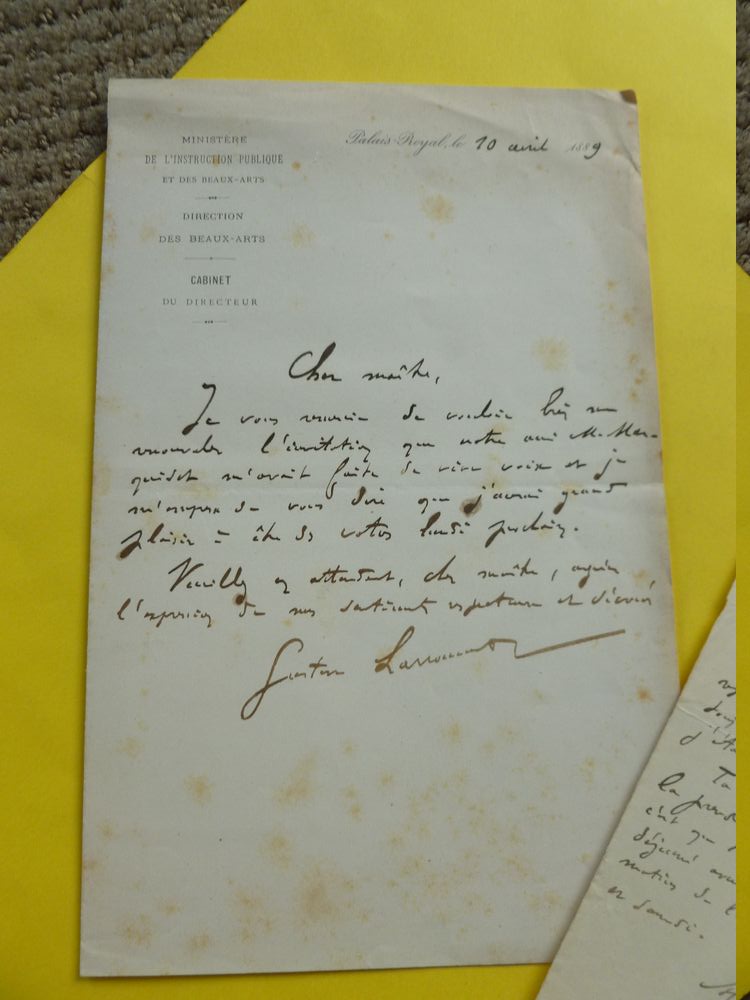 MINISTÈRE
DE L'INSTRUCTION PUBLIQUE
ET DES BEAUX-ARTS
DIRECTION
DES BEAUX-ARTS
CABINET
DU DIRECTEUR
Palais-Royal, le 10 avril 1889
Cher maître,
Je vous remercie de vouloir bien me
renouveler l'invitation que notre ami M. Mar-
quiset m'avait faite de vive voix et je
m'empresse de vous dire que j'aurai grand
plaisir à être des vôtres lundi prochain.
Veuillez en attendant, cher maître, agréer
l'expression de mes sentiments respectueux et dévoués
Gustave Larroumet
Ta
la
c'est que
déjeuner
matin de l
et samedi.